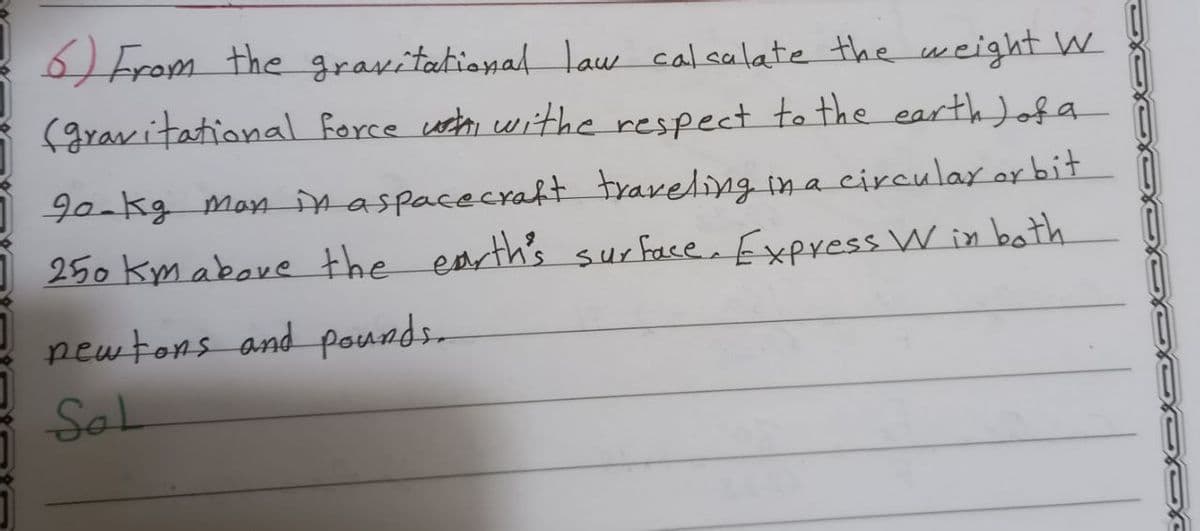 6) From the gravitational law calculate the weight W
(gravitational force withe respect to the earth) of a
90-kg man in a spacecraft traveling in a circular orbit
250 km above the earth's surface. Express W in both
newtons and pounds.
Sol